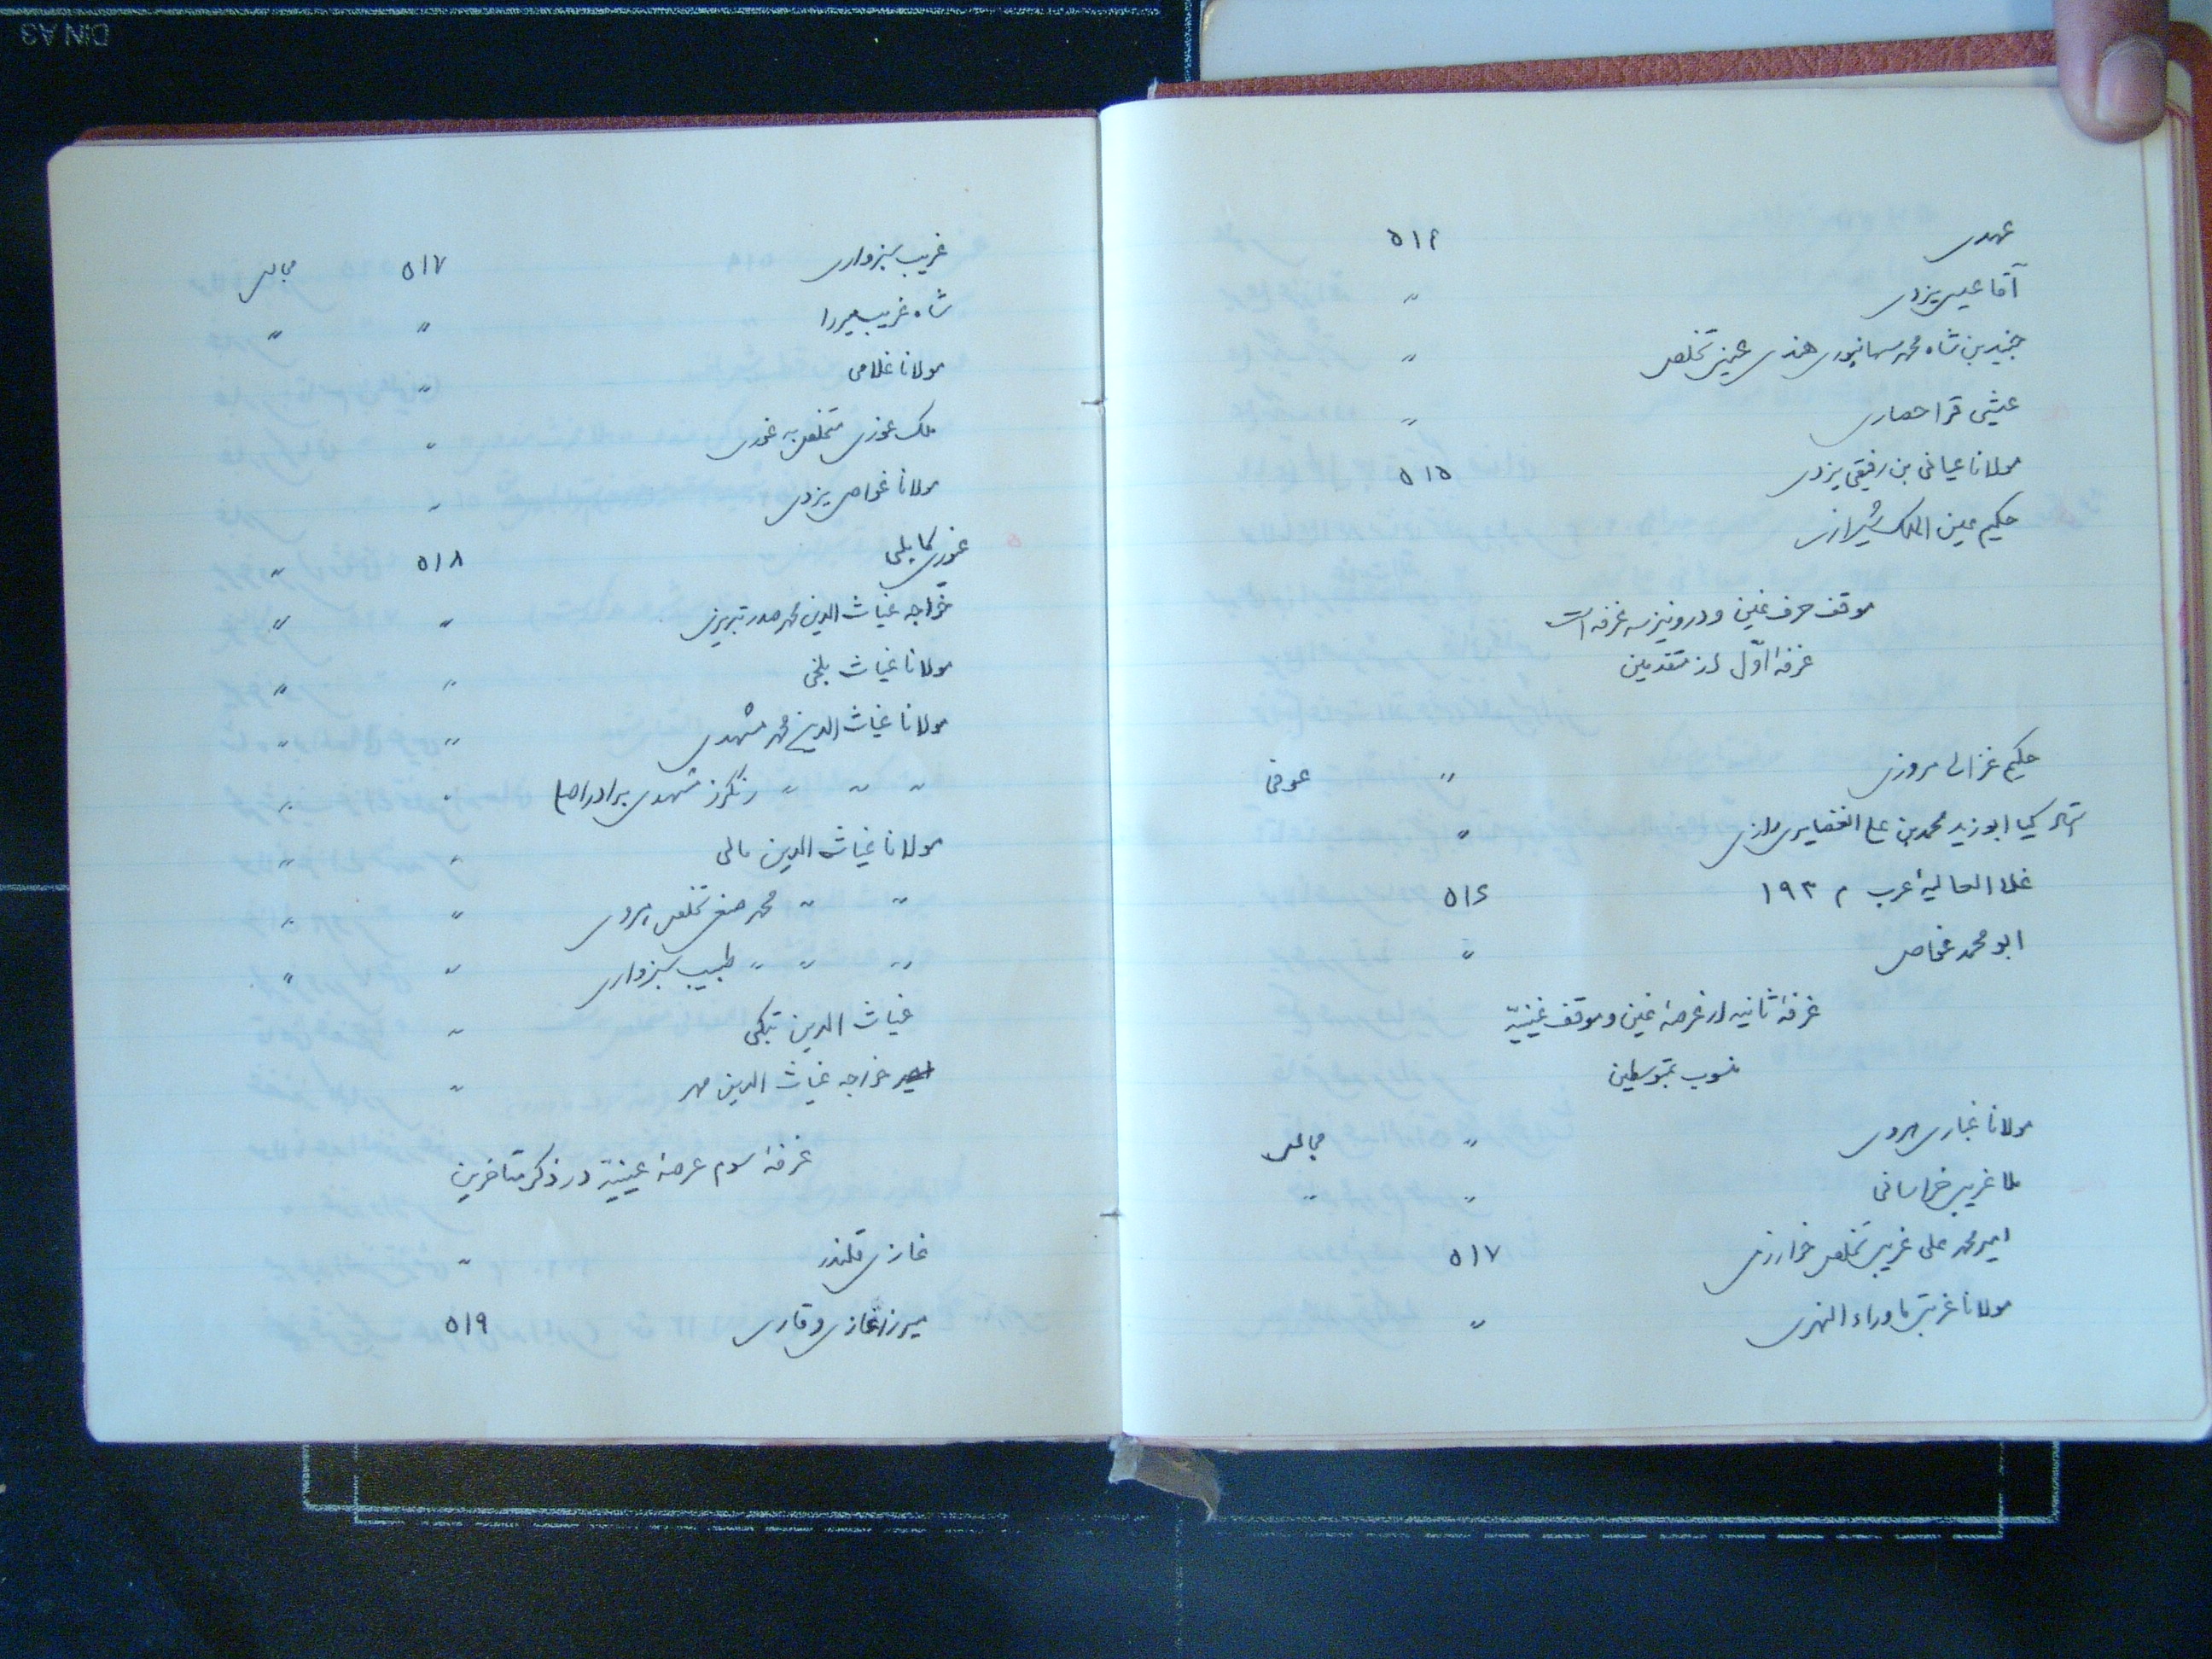 عهدی ۵۱۴
آقا عیسی یزدی "
جنید بن شاه محمد سهانپوری هندی عینی تخلص "
عیشی قراحصاری "
مولانا عیانی بن رفیقی یزدی ۵۱۵
حکیم عین الملک شیرازی
موقف حرف غین و درو نیز سه غرفه است
غرفهٔ اوّل از متقدمین
حکیم غزالی مروزی " عوفی
کیا ابو زید محمد بن علی الغضایری رازی "
غلا الحالیهٔ عرب م ۱۹۳ ۵۱۶
ابو محمد غخاص "
غرفهٔ ثانیه از عرصهٔ غین و موقف غینیّه
منسوب بمتوسطین
مولانا غباری هروی " مجالس
ملا غریبی خراسانی " "
امیر محمد علی غریبی تخلص خوارزمی ۵۱۷
مولانا غربتی ماوراء النهری "
غریب سبزواری ۵۱۷ مجالس
شاه غریب میرزا " "
مولانا غلامی "
ملک غوری متخلص به غوری "
مولانا غواصی یزدی "
غوری کابلی ۵۱۸ "
خواجه غیاث الدین محمد صدر تبریزی " "
مولانا غیاث بلخی " "
مولانا غیاث الدین محمد مشهدی " "
" " " رنگرز مشهدی برادر " "
مولانا غیاث الدین مالی " "
" " محمد تخلص هروی " "
" " " طبیب سبزواری " "
غیاث الدین تبکی "
خواجه غیاث الدین مهر "
غرفهٔ سوم عرصهٔ غینیة در ذکر متأخرین
غازی قلندر "
میرزا غازی وقاری ۵۱۹
DIN A3